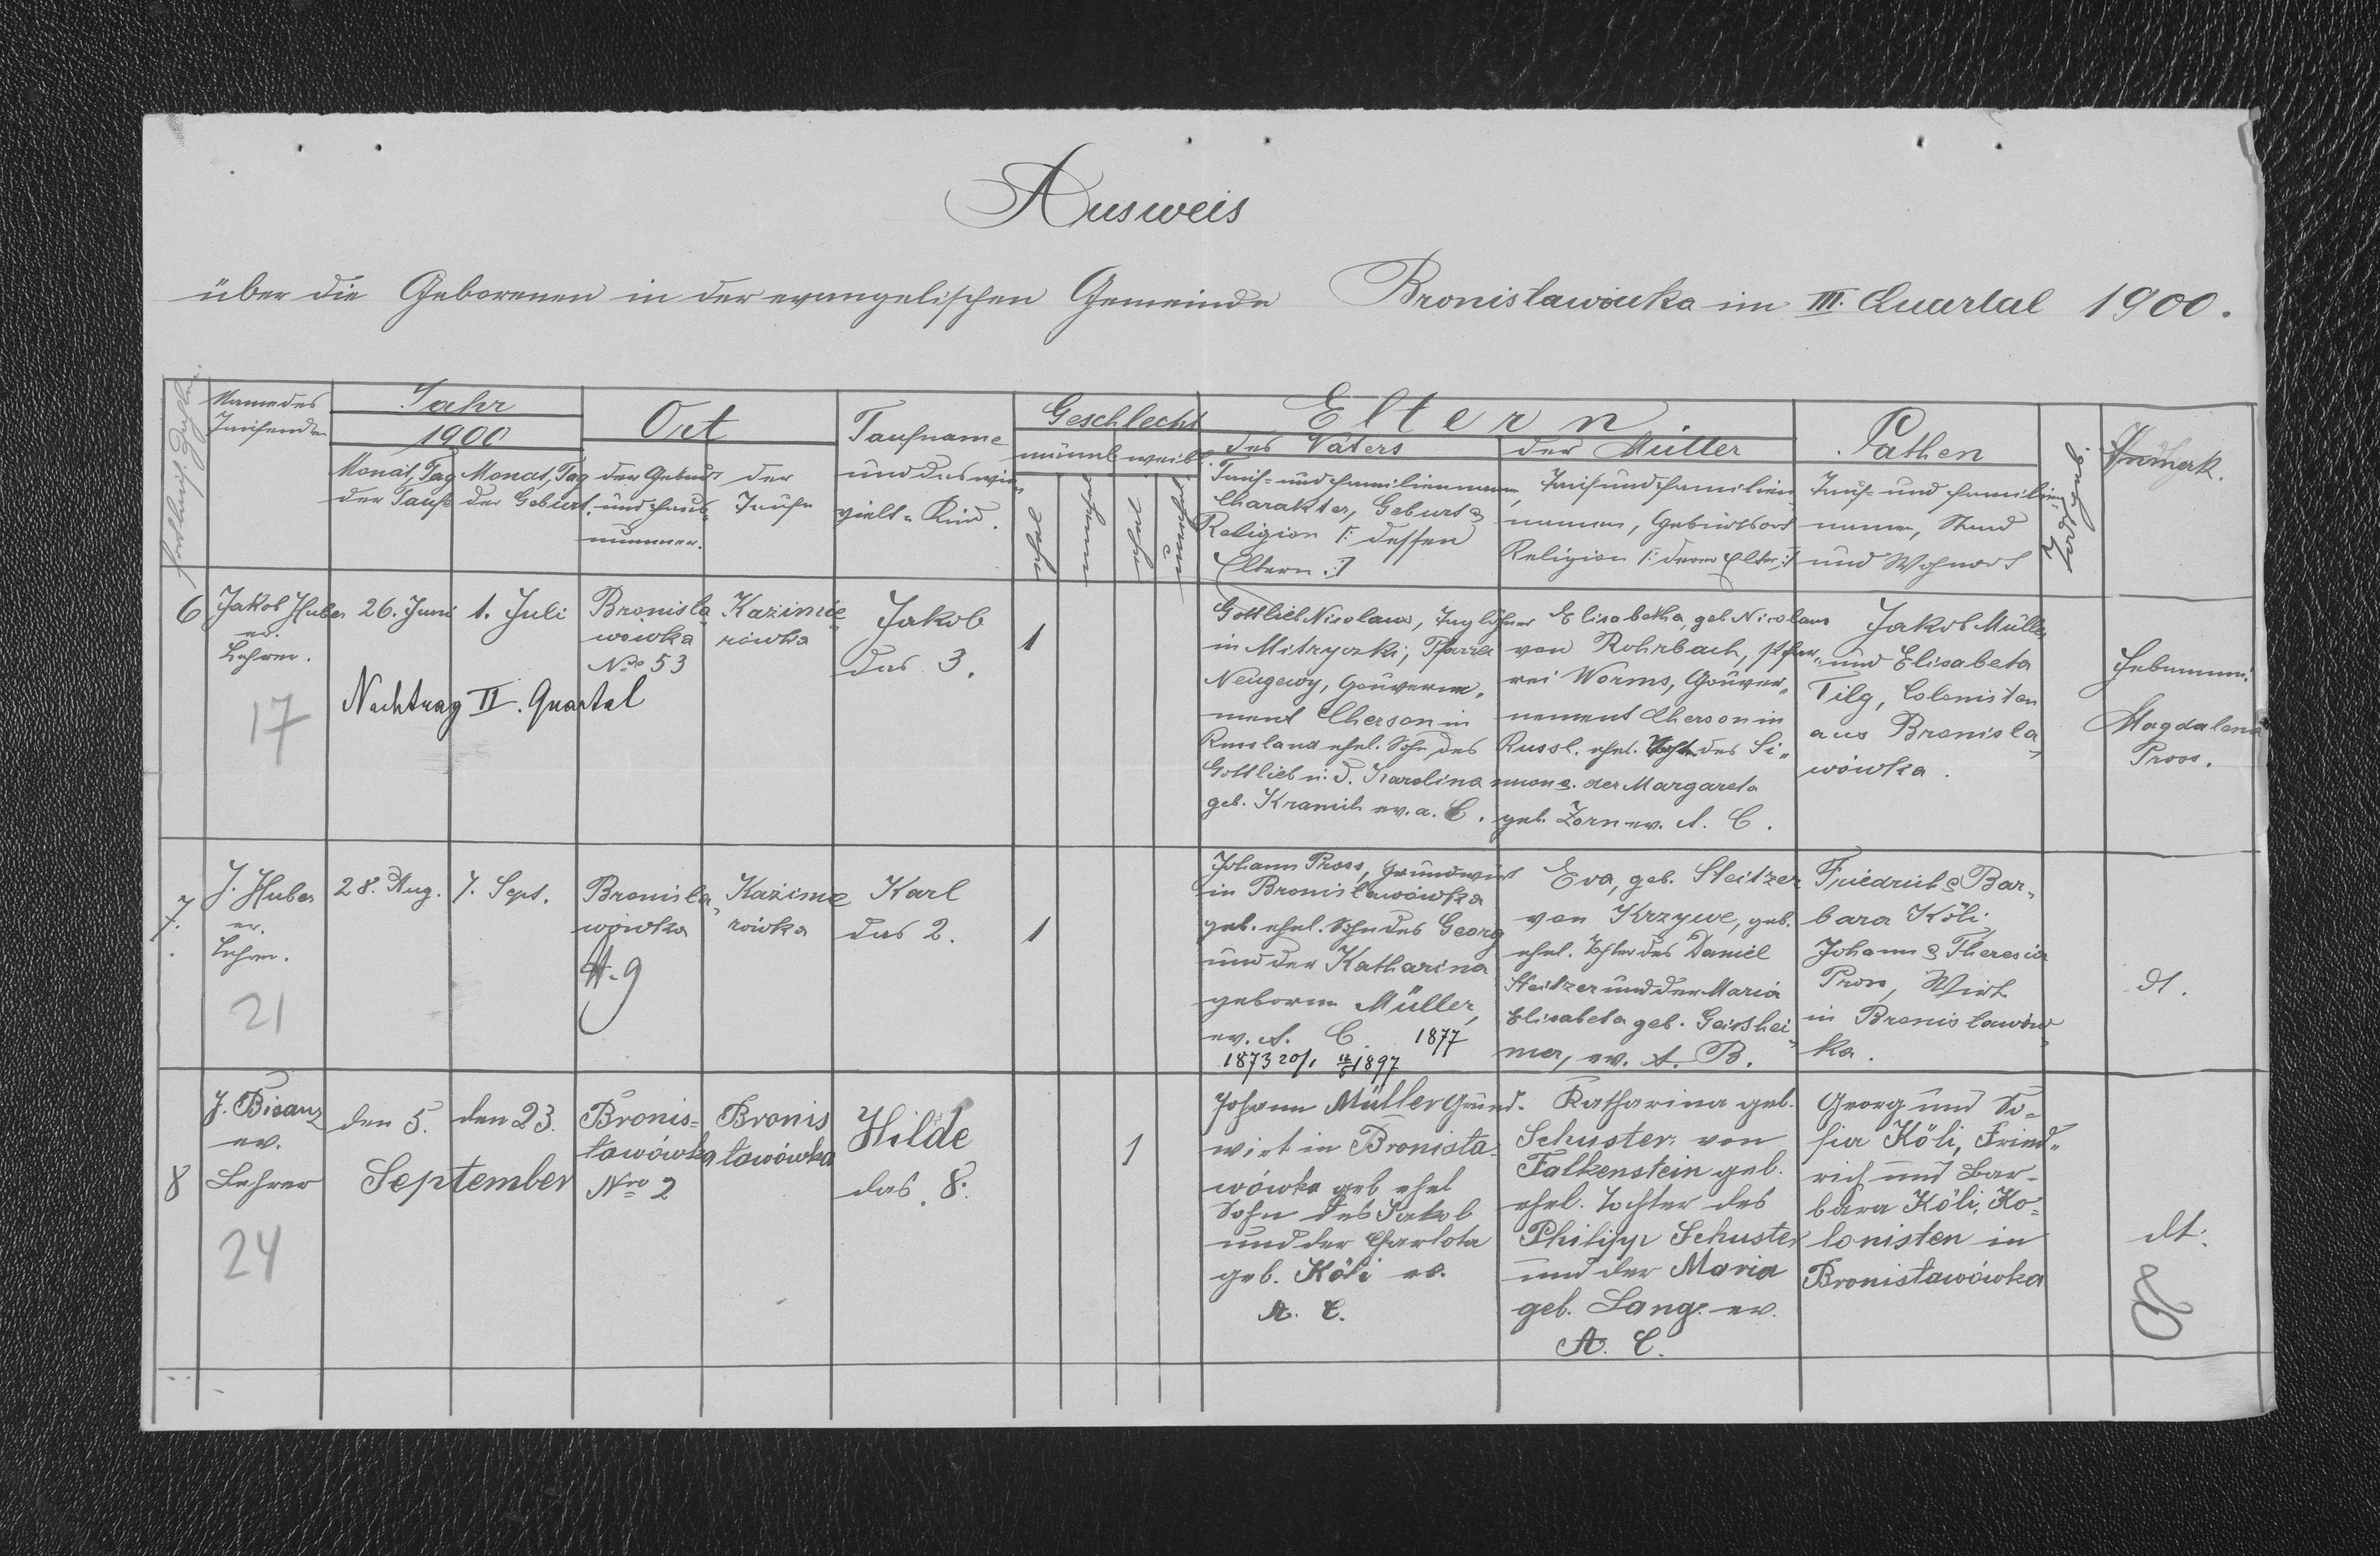 Ausweis
über die Geborenen in der evangelischen Gemeinde Bronisławówka im III. Quartal 1900.
Name des
Taufenden
Jahr
1900
Monat, Tag
der Taufe
Monat, Tag
der Geburt
Ort
der Geburt
und Haus-
nummer.
der
Taufe
Taufname
und das wie
vielte Kind.
Geschlecht
männl.
weibl.
Eltern
des Vaters
Tauf- und Familienname,
Charakter, Geburts
Religion /: dessen
Eltern :/
der Mutter
Tauf und Familien
namen, Geburtsort
Religion /: deren Elter :/
Pathen
Tauf- und Familien
namen, Stand
und Wohnort
Anmerk.
6
Jakob Huber
ev.
Lehrer.
17
26. Juni
1. Juli
Nachtrag II. Quartal
Bronisła
wówka
Nro 53
Kazimie
rówka
Jakob
das 3.
1
Gottlieb Nicolaus, Taglöhner
in Mitryczki, Pfarre
Neugewy, Gouverne-
ment Cherson in
Russland ehel. Sohn des
Gottlieb u. d. Karolina
geb. Kramlih ev. a. C.
Elisabetha, geb Nicolaus
von Rohrbach, Pfar-
rei Worms, Gouver-
nement Cherson in
Russl. ehel. Tocht des Si-
mon & der Margareta
geb. Zorn ev. A. C.
Jakob Müller
und Elisabeta
Tilg, Colonisten
aus Bronisła
wówka.
Hebamme:
Magdalena
Pross.
7.
J. Huber
ev.
Lehrer.
21
28. Aug.
7. Sept.
Bronisła
wówka
9
Kazimie
rówka
Karl
das 2.
1
Johann Pross, Grundwirt
in Bronisławówka
geb. ehel. Sohn des Georg
und der Katharina
geborene Müller,
ev. A. C. 1877
1873 20/1 1897
Eva, geb. Steitzer
von Krzywe, geb.
ehel. Tochter des Daniel
Steitzer und der Maria
Elisabeta geb. Geisshei
mer, ev. A. B.
Friedrich & Bar-
bara Köli,
Johann & Theresia
Pross, Wirt
in Bronisławów
ka.
dt.
8
J. Bisanz
ev.
Lehrer
24
den 5.
den 23.
September
Bronis-
ławówka
Nro 2
Bronis
ławówka
Hilde
das 8.
1
Johann Müller Grund-
wirt in Bronisła-
wówka geb ehel
Sohn des Jakob
und der Charlota
geb. Köli ev.
A. C.
Katharina geb.
Schuster von
Falkenstein geb.
ehel. Tochter des
Philipp Schuster
und der Maria
geb. Lang. ev.
A. C.
Georg und So-
fia Köli, Fried-
rich und Bar-
bara Köli, Ko-
lonisten in
Bronisławówka
dt.